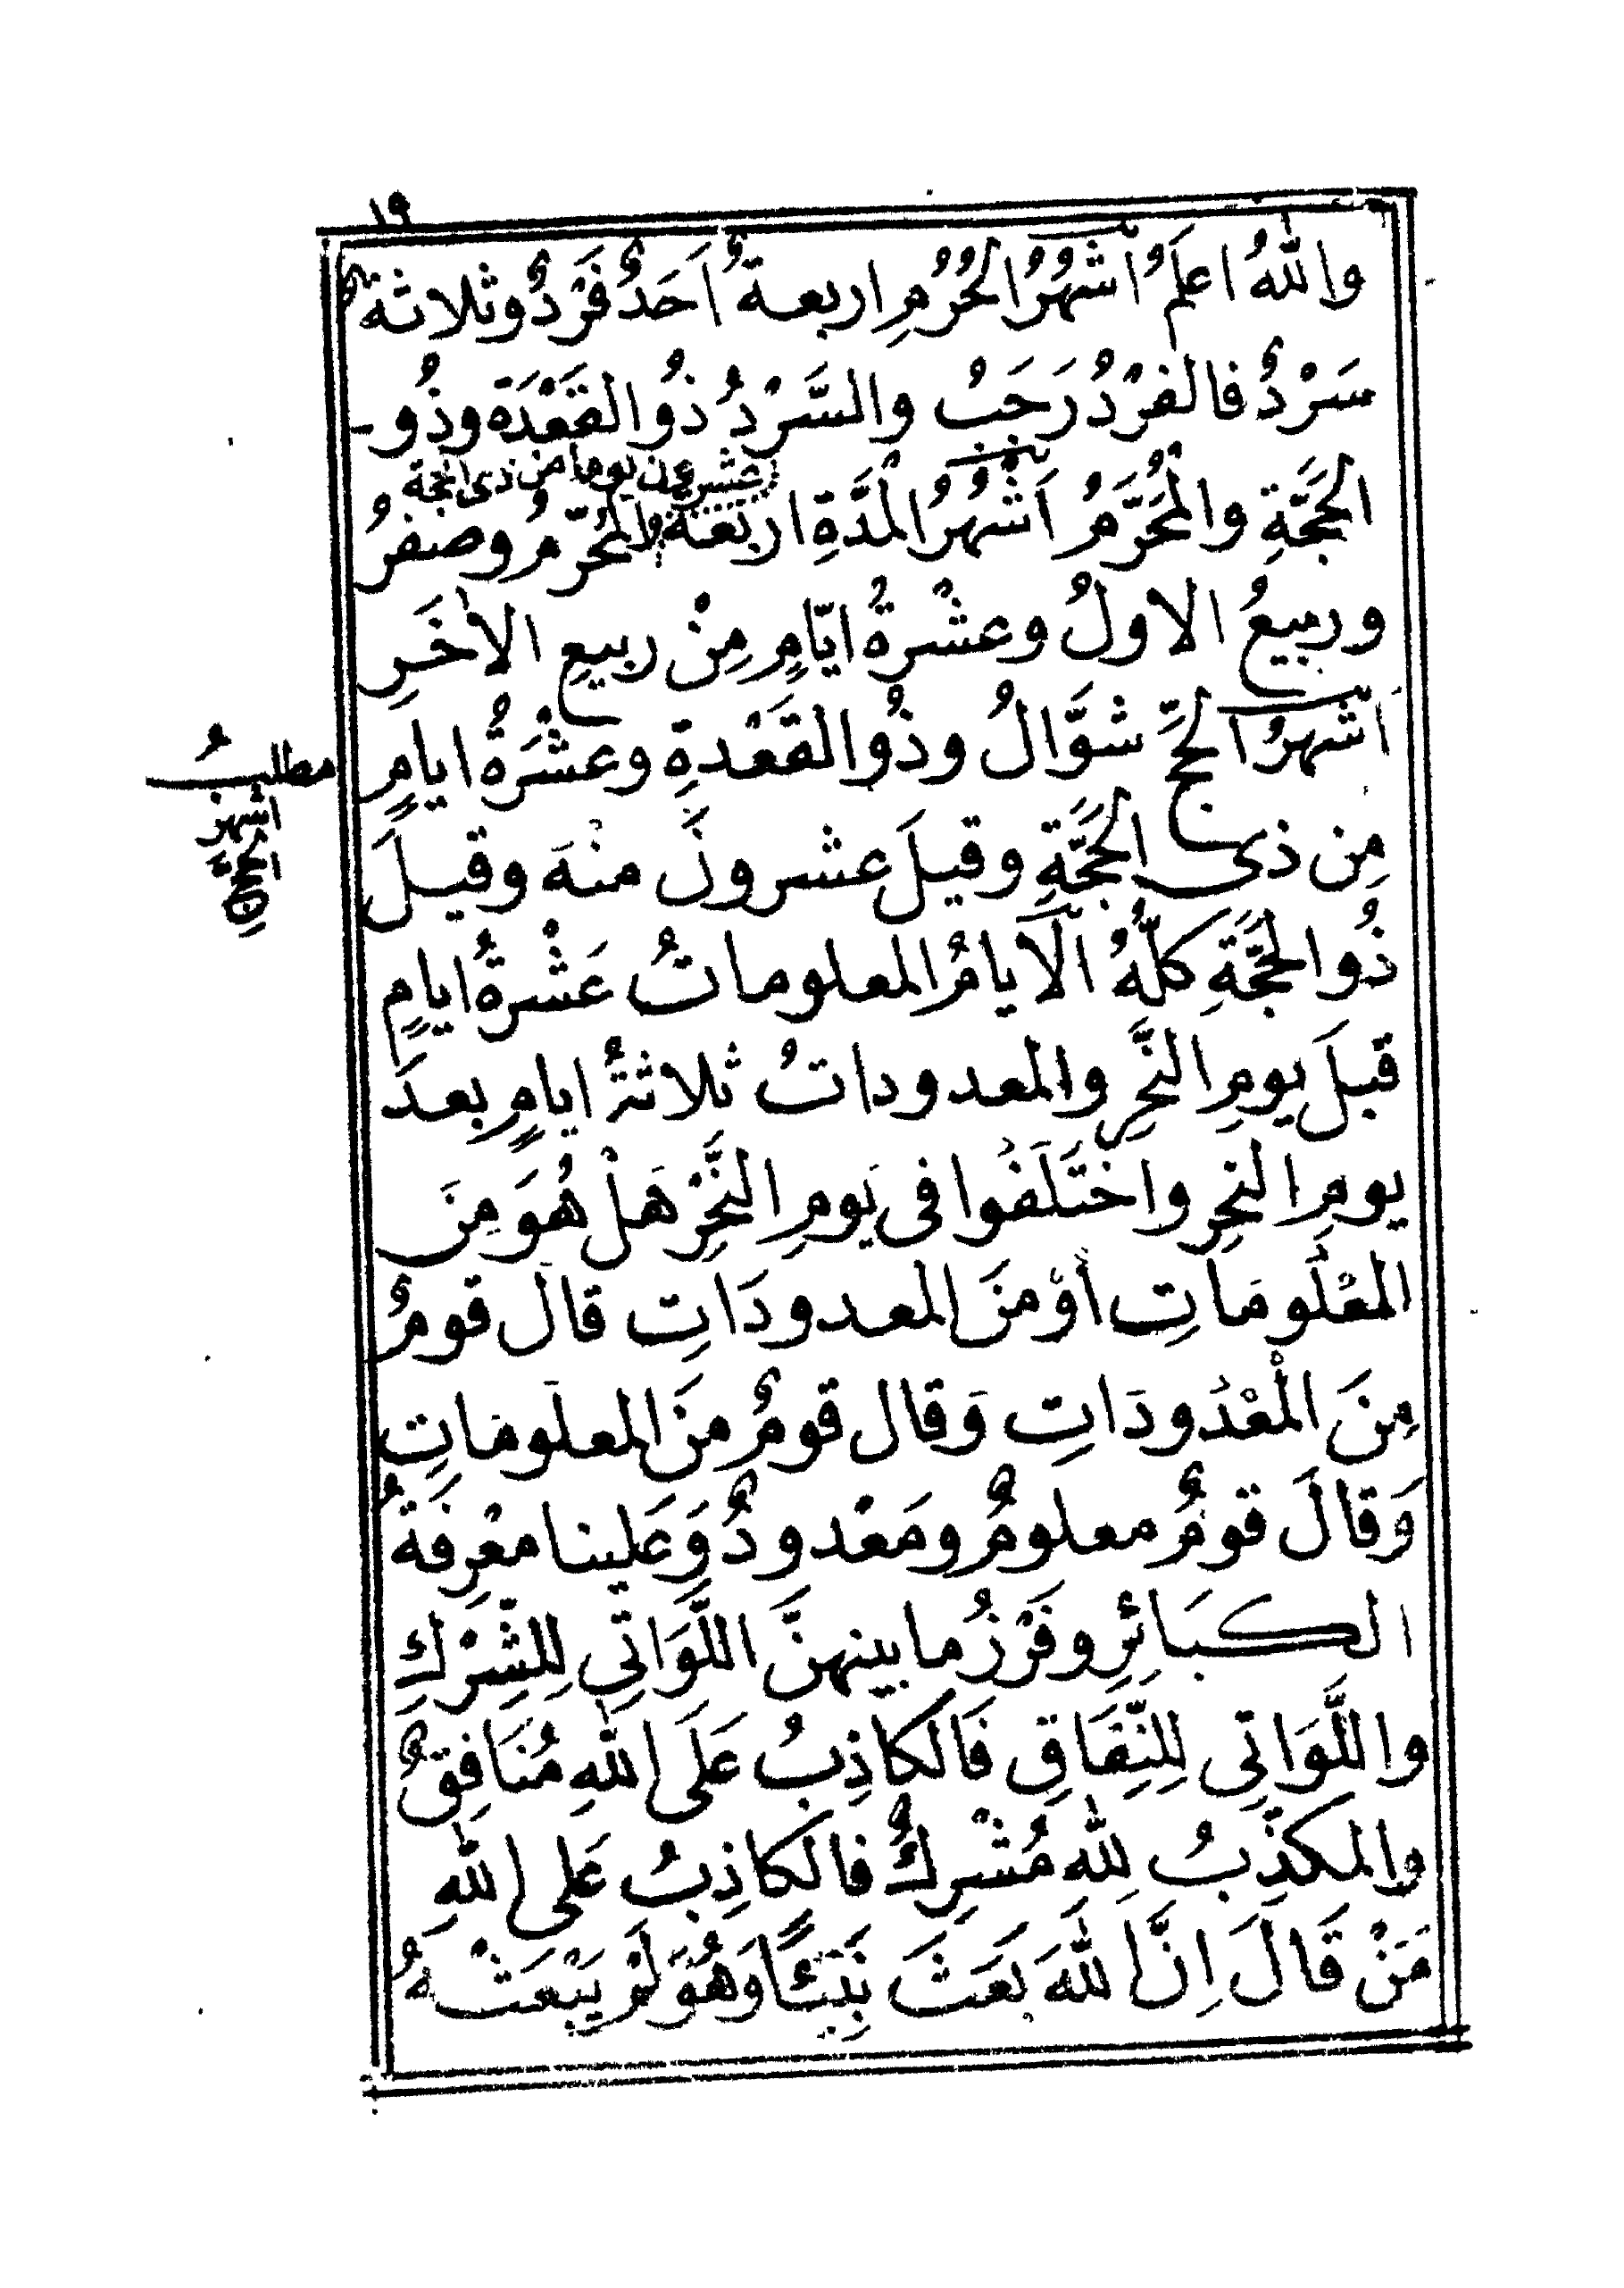 ١٩
واللهُ اعلمُ اَشهُرُ الحُرُمِ اربعةٌ اَحَدٌ فَرْدٌ وثلاثةٌ
سَرْدٌ فالفرْدُ رَجَبُ والسَّرْدُ ذُوالقَعْدَة وذُو
الحَجَّةِ والمُحَرَّمُ اَشْهُرُ المُدَّةِ اربعةٌ
عشرون يوما من ذى الحجة
المُحَرّمُ وصفرُ
وربيعُ الاولُ وعشْرةُ ايّامٍ مِنْ ربيعِ الاٰخَرِ
اَشهرُ الحجِّ شَوَّالُ وذُوالقَعْدةِ وعشْرَةُ ايامٍ
مطلبُ
اشهرُ
الحجِّ
مِن ذى الحَجَّةِ وقيلَ عشرونَ منهَ وقيلَ
ذُوالحَجَّةِ كلُّهُ الاَيامُ المعلوماتُ عَشْرةُ ايامٍ
قبلَ يومِ النَّحرِ والمعدوداتُ ثلاثةُ ايامٍ بعدَ
يومِ النحرِ واختَلَفُوا فى يَومِ النَّحْرِ هَلْ هُوَ مِنَ
المعْلُومَاتِ أَوْ منَ المعدودَاتِ قالَ قومٌ
مِنَ المْعْدُودَاتِ وَقال قومٌ منَ المعلومَاتِ
وَقالَ قومٌ معلومٌ ومَعْدودٌ وَعَلينا معْرِفةُ
الكبَائِرِ وفَرْزُ ما بينهنَّ اللَّوَاتِى لِلشِّرْكِ
واللَّوَاتِى لِلنِّفَاقِ فَالكاذِبُ عَلَى اللهِ مُنَافِقٌ
والمكذِّبُ لِلهِ مُشْرِكٌ فالكاذِبُ عَلى اللهِ
مَنْ قَالَ اِنَّ اللهَ بَعَثَ نَبِيّئًا وَهُوَ لَمْ يَبْعَثْهُ